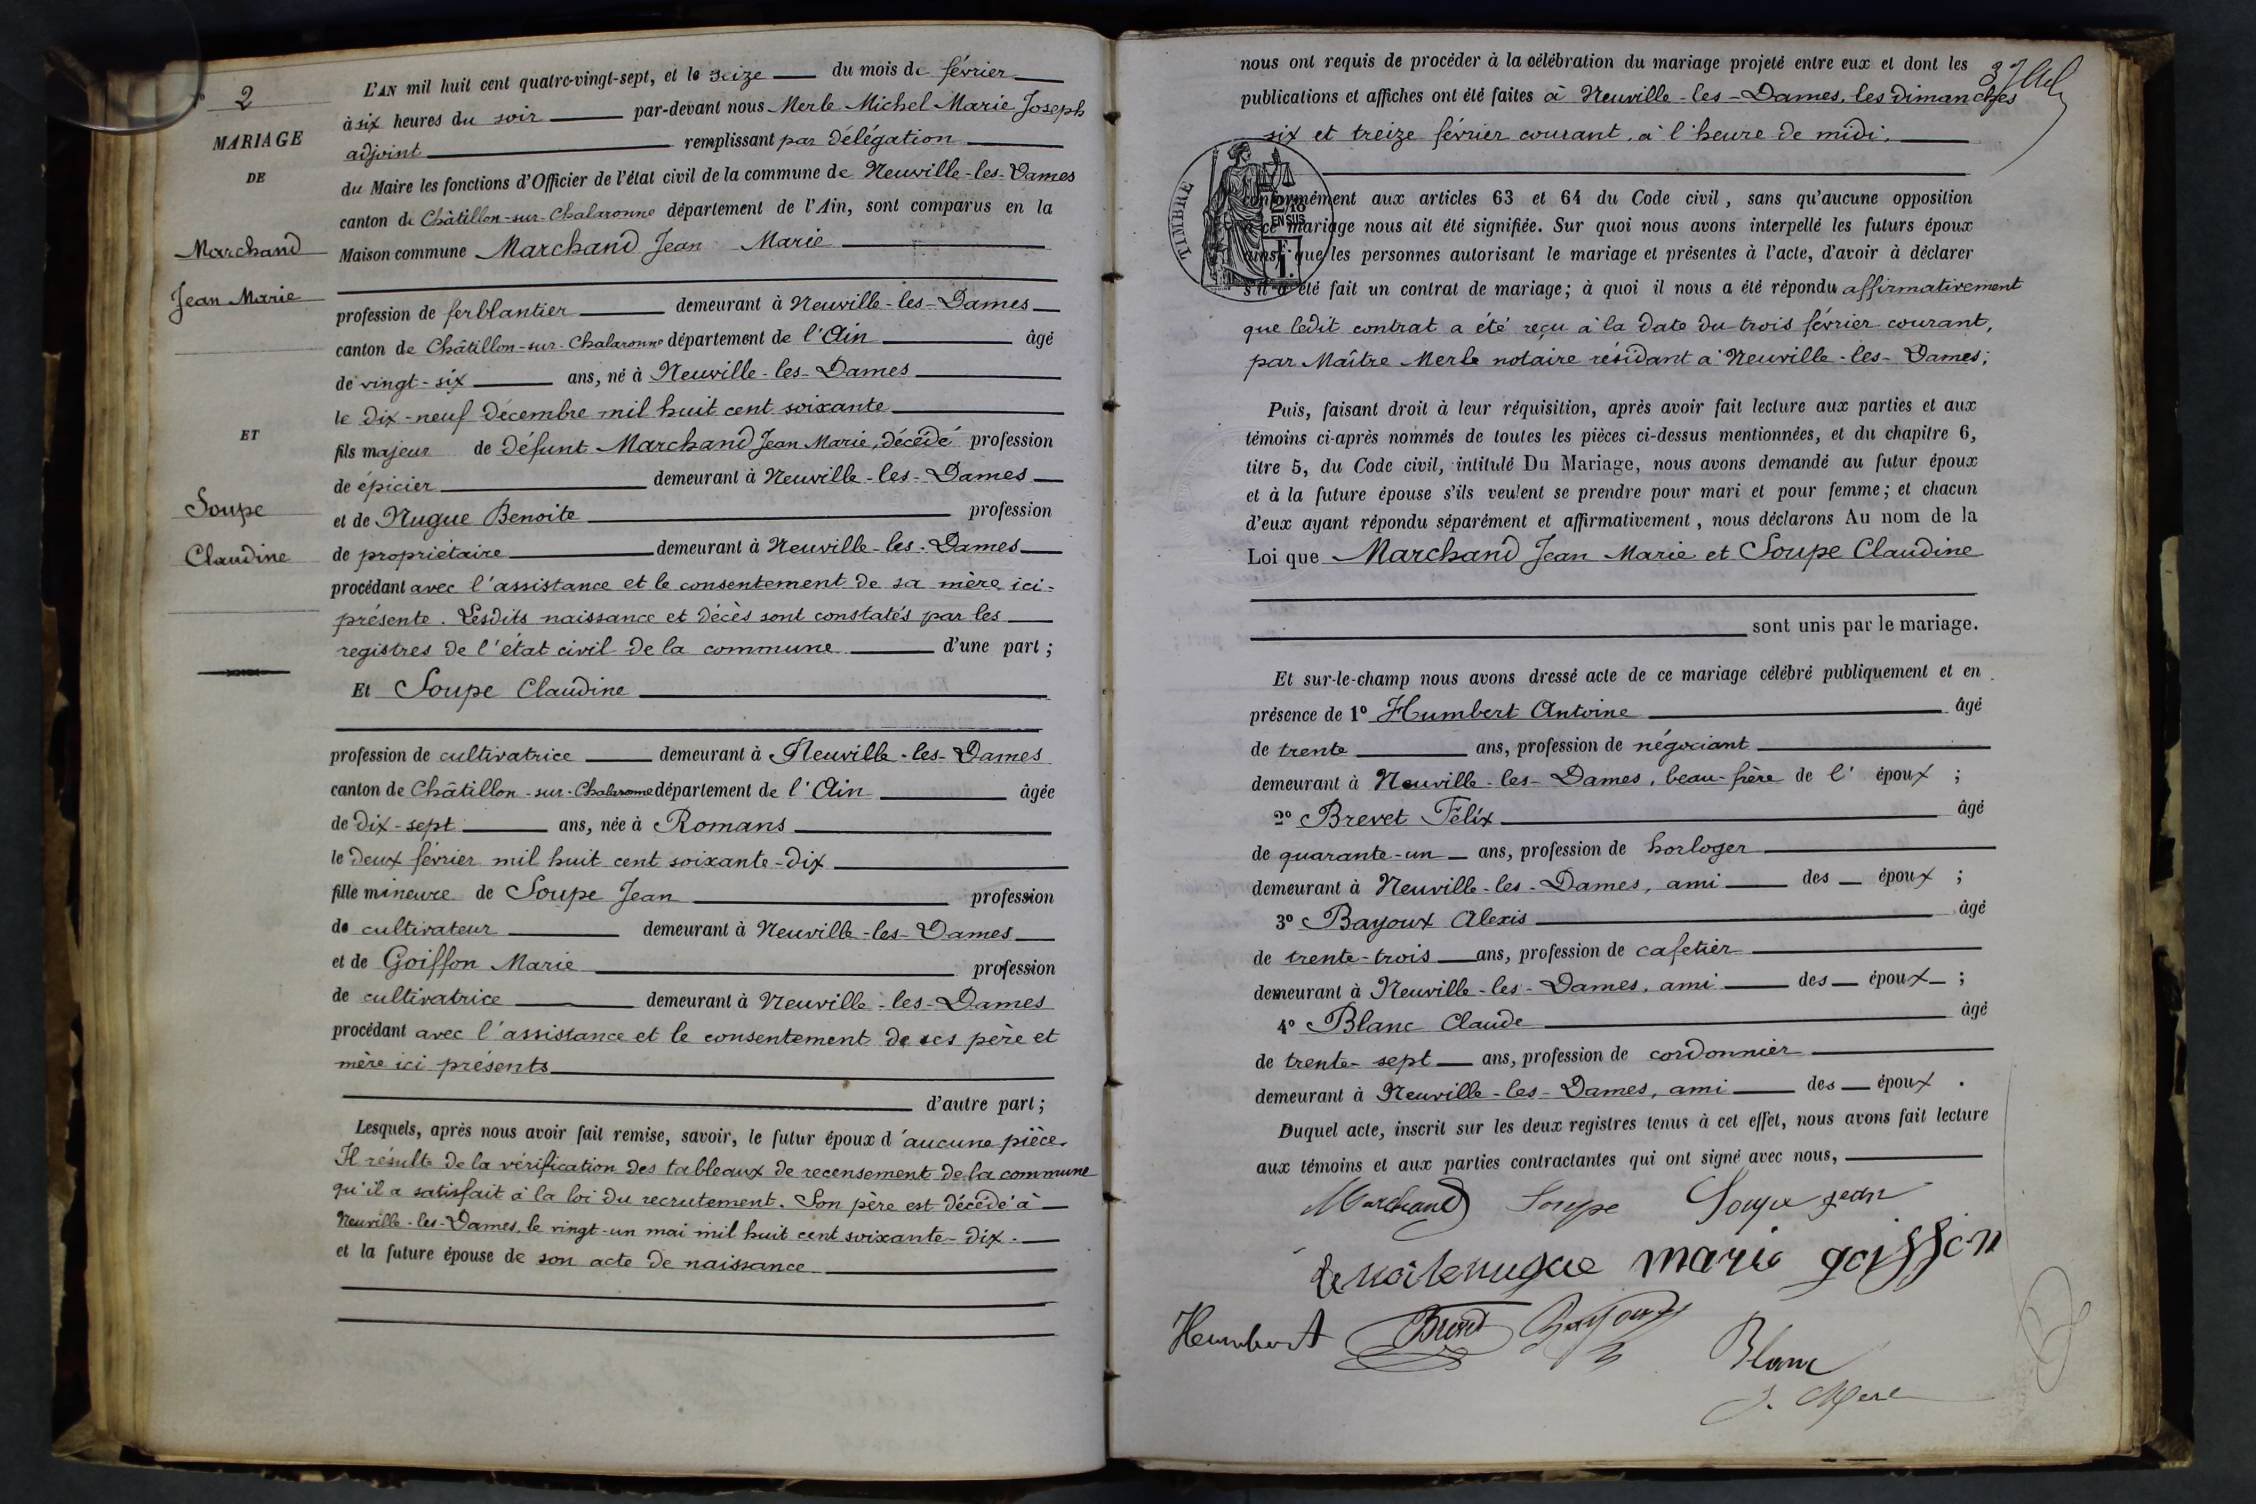 2
MARIAGE
DE
Marchand
Jean Marie
ET
Soupe
Claudine
L'AN mil huit cent quatre-vingt-sept, et le seize du mois de février
à six heures du soir par-devant nous Merle Michel Marie Joseph
adjoint remplissant par délégation
du Maire les fonctions d'Officier de l'état civil de la commune de Neuville-les-Dames
canton de Châtillon-sur-Chalaronne département de l'Ain, sont comparus en la
Maison commune Marchand Jean Marie
profession de ferblantier demeurant à Neuville-les-Dames
canton de Châtillon-sur-Chalaronne département de l'Ain âgé
de vingt-six ans, né à Neuville-les-Dames
le dix-neuf décembre mil huit cent soixante
fils majeur de défunt Marchand Jean Marie, décédé profession
de épicier demeurant à Neuville-les-Dames
et de Nugue Benoite profession
de propriétaire demeurant à Neuville-les-Dames
procédant avec l'assistance et le consentement de sa mère ici-
présente. Lesdits naissance et décès sont constatés par les
registres de l'état civil de la commune d'une part;
Et Soupe Claudine
profession de cultivatrice demeurant à Neuville-les-Dames
canton de Châtillon-sur-Chalaronne département de l'Ain âgée
de dix-sept ans, née à Romans
le deux février mil huit cent soixante-dix
fille mineure de Soupe Jean profession
de cultivateur demeurant à Neuville-les-Dames
et de Goiffon Marie profession
de cultivatrice demeurant à Neuville-les-Dames
procédant avec l'assistance et le consentement de ses père et
mère ici présents
d'autre part;
Lesquels, après nous avoir fait remise, savoir, le futur époux d'aucune pièce.
Il résulte de la vérification des tableaux de recensement de la commune
qu'il a satisfait à la loi du recrutement. Son père est décédé à
Neuville-les-Dames, le vingt-un mai mil huit cent soixante-dix.
et la future épouse de son acte de naissance
nous ont requis de procéder à la célébration du mariage projeté entre eux et dont les
publications et affiches ont été faites à Neuville-les-Dames, les dimanches
six et treize février courant, à l'heure de midi,
TIMBRE
2/10
EN SUS
conformément aux articles 63 et 64 du Code civil, sans qu'aucune opposition
à ce mariage nous ait été signifiée. Sur quoi nous avons interpellé les futurs époux
ainsi que les personnes autorisant le mariage et présentes à l'acte, d'avoir à déclarer
s'il a été fait un contrat de mariage; à quoi il nous a été répondu affirmativement
que ledit contrat a été reçu à la date du trois février courant,
par Maître Merle notaire résidant à Neuville-les-Dames;
Puis, faisant droit à leur réquisition, après avoir fait lecture aux parties et aux
témoins ci-après nommés de toutes les pièces ci-dessus mentionnées, et du chapitre 6,
titre 5, du Code civil, intitulé Du Mariage, nous avons demandé au futur époux
et à la future épouse s'ils veulent se prendre pour mari et pour femme; et chacun
d'eux ayant répondu séparément et affirmativement, nous déclarons Au nom de la
Loi que Marchand Jean Marie et Soupe Claudine
sont unis par le mariage.
Et sur-le-champ nous avons dressé acte de ce mariage célébré publiquement et en
présence de 1° Humbert Antoine âgé
de trente ans, profession de négociant
demeurant à Neuville-les-Dames, beau-frère de l'époux;
2° Brevet Félix âgé
de quarante-un ans, profession de horloger
demeurant à Neuville-les-Dames, ami des époux;
3° Bayoux Alexis âgé
de trente-trois ans, profession de cafetier
demeurant à Neuville-les-Dames, ami des époux;
4° Blanc Claude âgé
de trente-sept ans, profession de cordonnier
demeurant à Neuville-les-Dames, ami des époux.
Duquel acte, inscrit sur les deux registres tenus à cet effet, nous avons fait lecture
aux témoins et aux parties contractantes qui ont signé avec nous,
Marchand Soupe Soupe jean
Benoite nugue marie goiffon
Humbert Brevet Bayoux
Blanc
J. Merle